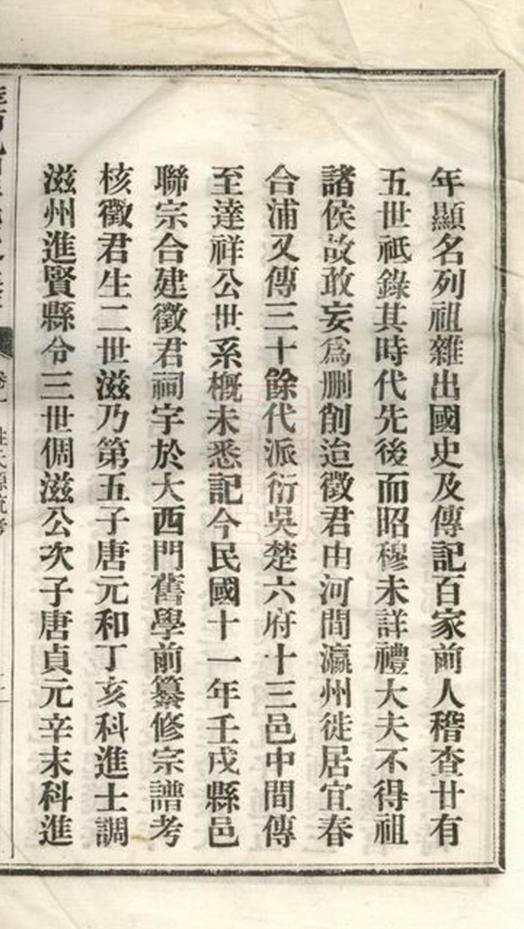 年顯名列祖雜出國史及傳記百家前人稽查廿有
五世祗錄其時代先後而昭穆未詳禮大夫不得祖
諸侯故敢妄為刪削迨徵君由河間瀛州徙居宜春
合浦又傳三十餘代派衍吳楚六府十三邑中間傳
至達祥公世系概未悉記今民國十一年壬戌縣邑
聯宗合建徵君祠宇於大西門舊學前纂修宗譜考
核徵君生二世滋乃第五子唐元和丁亥科進士調
滋州進賢縣令三世倜滋公次子唐貞元辛未科進
卷一
姓氏源流考